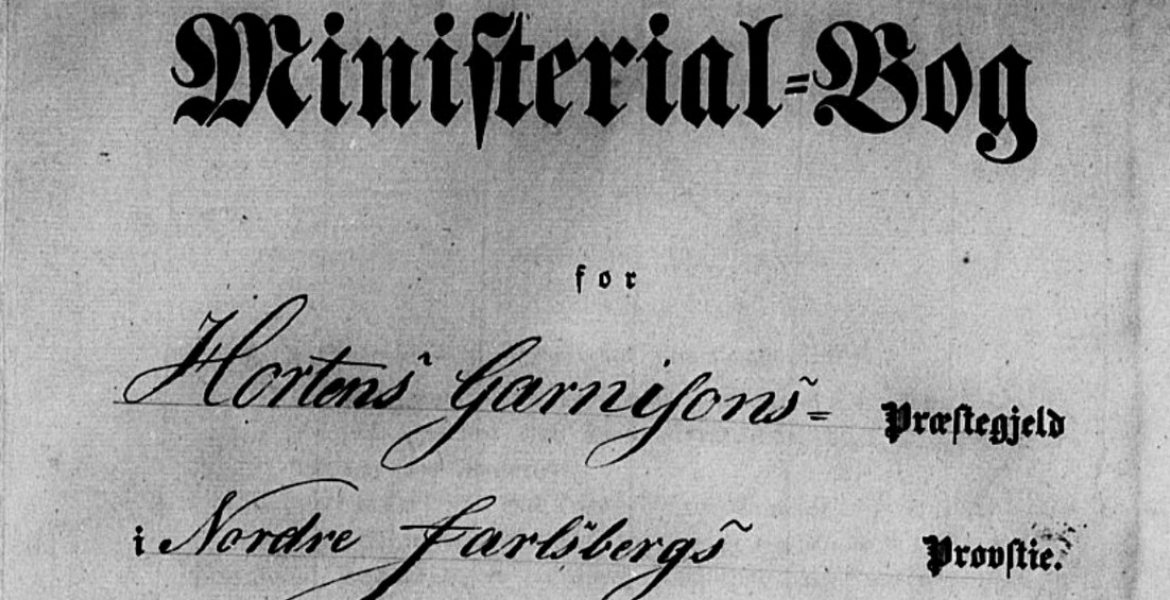 Ministerial-Bog
for
Hortens Garnisons- Præstegjeld
i Nordre Jarlsbergs Provstie.